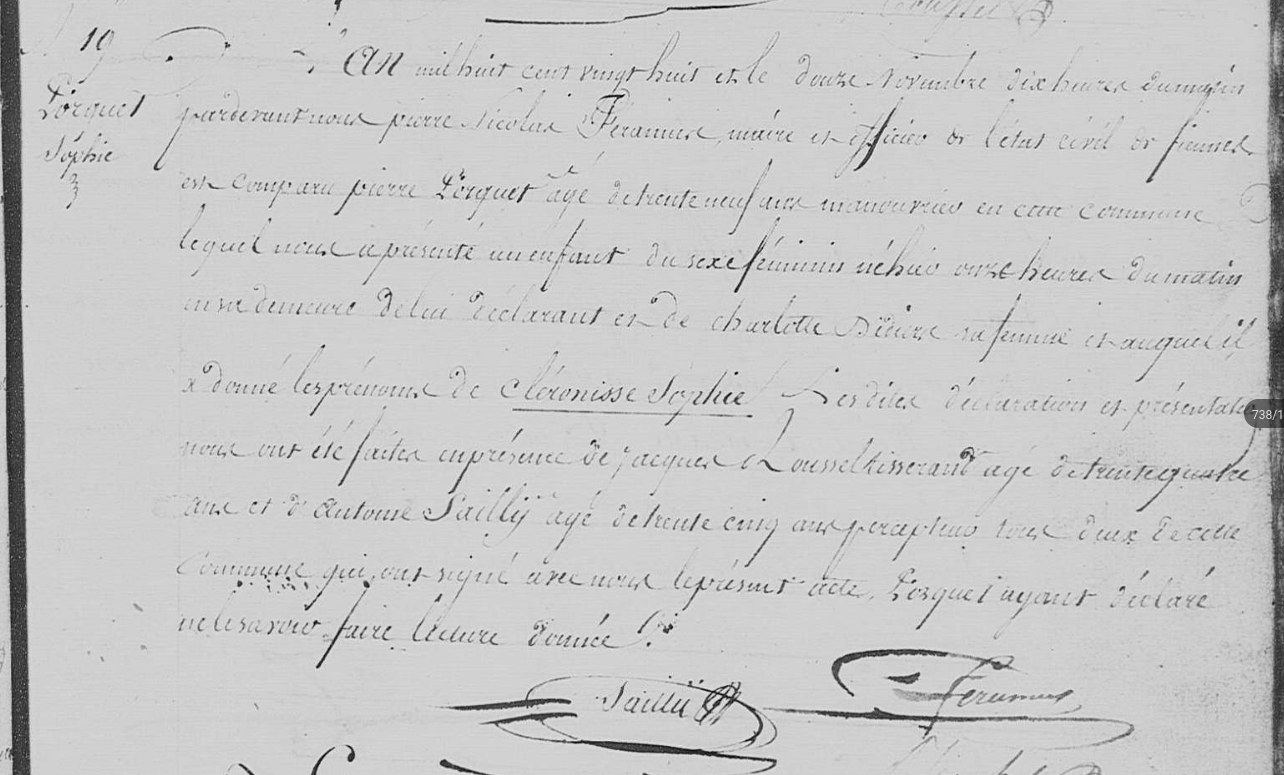 19
Lorquet
Sophie
3
L'An mil huit cent vingt huit et le douze Novembre dix heures du matin
pardevant nous pierre Nicolas Feramus, maire et officier de l'état civil de fiennes
est comparu pierre Lorquet âgé de trente neuf ans manouvrier en cette commune
lequel nous a présenté un enfant du sexe féminin né hier onze heures du matin
en sa demeure de lui déclarant et de charlotte sa femme et auquel il
a donné les prénoms de Cléronisse Sophie Les dites déclaration et présentation
nous ont été faites en présence de jacques Rousseltisserand agé de trente quatre
ans et d'Antoine Sailly agé de trente cinq ans percepteur tous deux de cette
Commune qui ont signé avec nous le présent acte, Lorquet ayant déclaré
ne le savoir faire lecture donnée
Sailly Feramus
738/1